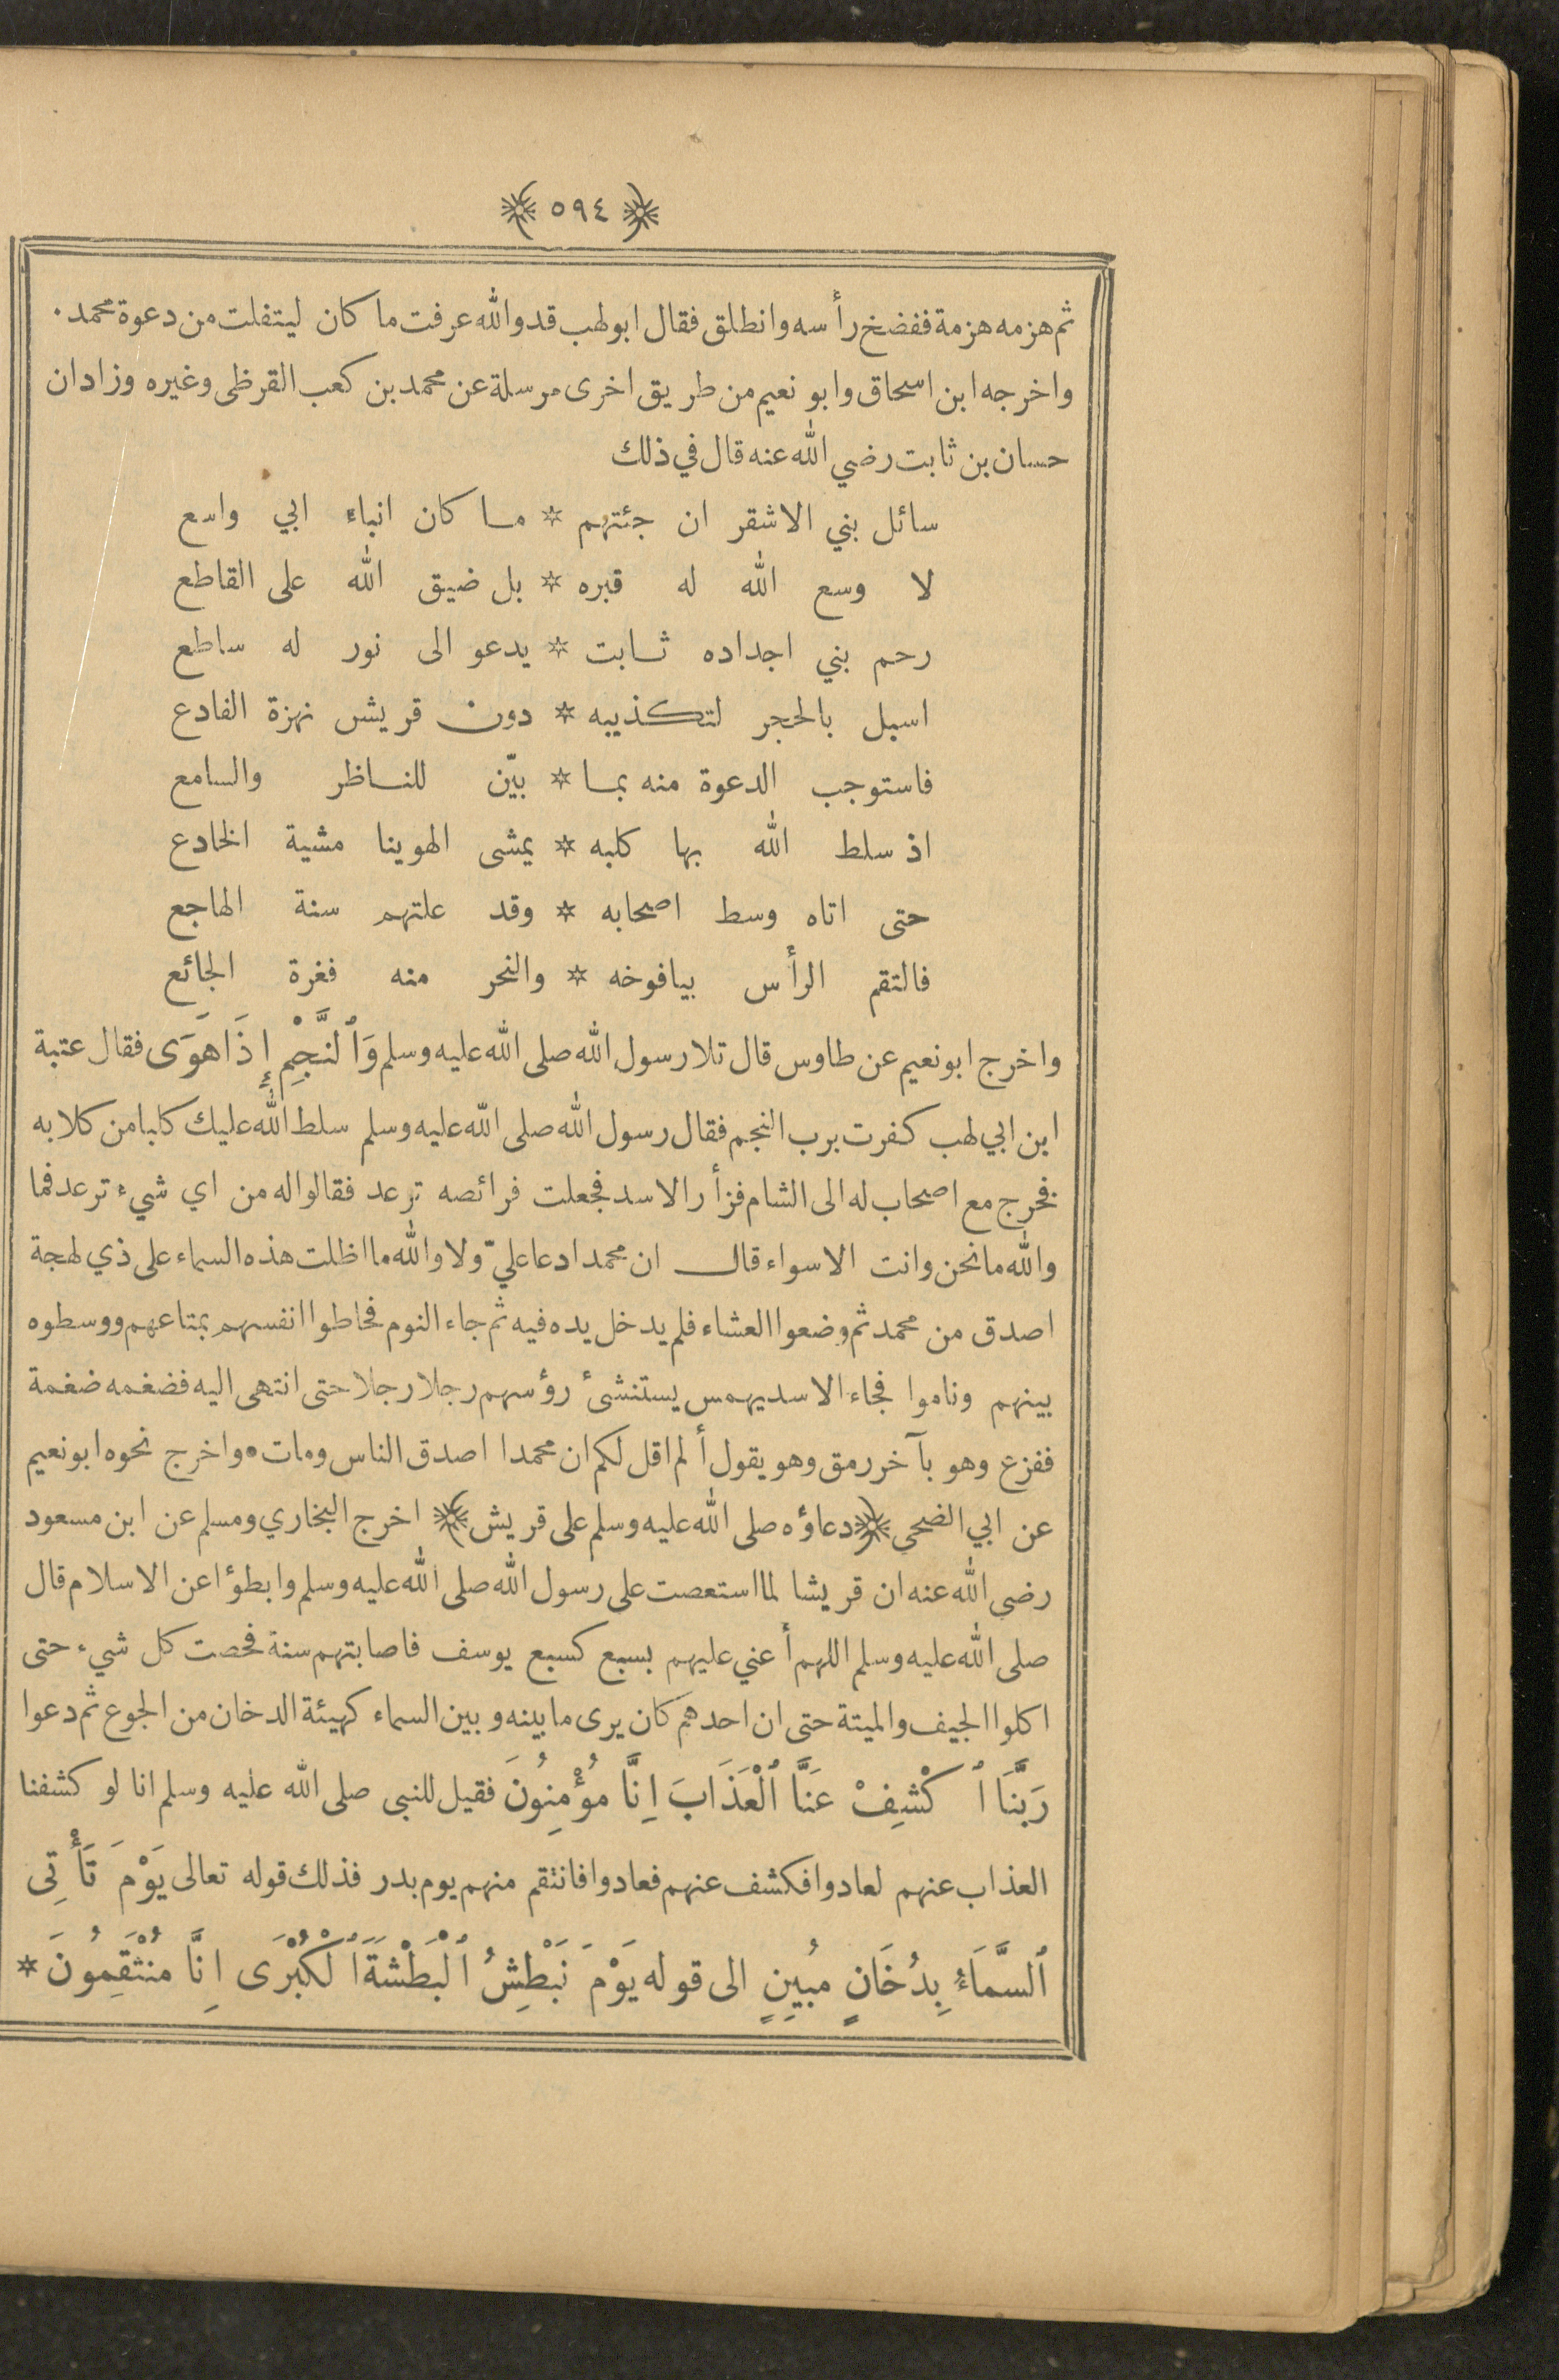 ﴿ ٥٩٤ ﴾
ثم هزمه هزمة ففضخ رأسه وانطلق فقال ابو لهب قد والله عرفت ما كان ليتفلت من دعوة محمد ٠
واخرجه ابن اسحاق وابو نعيم من طريق اخرى مرسلة عن محمد بن كعب القرظي وغيره وزادان
حسان بن ثابت رضي الله عنه قال في ذلك
سائل بني الاشقر ان جئتهم * ما كان انباء ابي واسع
لا وسع الله له قبره * بل ضيق الله على القاطع
رحم بني اجداده ثابت * يدعو الى نور له ساطع
اسبل بالحجر لتكذيبه * دون قريش نهزة الفادع
فاستوجب الدعوة منه بما * بيّن للناظر والسامع
اذ سلط الله بها كلبه * يمشى الهوينا مشية الخادع
حتى اتاه وسط اصحابه * وقد علتهم سنة الهاجع
فالتقم الرأس بيافوخه * والنحر منه فغرة الجائع
واخرج ابو نعيم عن طاوس قال تلا رسول الله صلى الله عليه وسلم وَٱلنَّجْمِ إِذَا هَوَى فقال عتبة
ابن ابي لهب كفرت برب النجم فقال رسول الله صلى الله عليه وسلم سلط الله عليك كلبا من كلابه
فخرج مع اصحاب له الى الشام فزأر الاسد فجعلت فرائصه ترعد فقالوا له من اي شيء ترعد فما
والله ما نحن وانت الا سواء قال ان محمدا دعا عليّ ولا والله ما اظلت هذه السماء على ذي لهجة
اصدق من محمد ثم وضعوا العشاء فلم يدخل يده فيه ثم جاء النوم فحاطوا انفسهم بمتاعهم ووسطوه
بينهم وناموا فجاء الاسد يهمس يستنشئ رؤسهم رجلا رجلا حتى انتهى اليه فضغمه ضغمة
ففزع وهو بآخر رمق وهو يقول ألم اقل لكم ان محمدا اصدق الناس ومات ٠ واخرج نحوه ابو نعيم
عن ابي الضحى ﴿ دعاؤه صلى الله عليه وسلم على قريش ﴾ اخرج البخاري ومسلم عن ابن مسعود
رضي الله عنه ان قريشا لما استعصت على رسول الله صلى الله عليه وسلم وابطؤا عن الاسلام قال
صلى الله عليه وسلم اللهم أعني عليهم بسبع كسبع يوسف فاصابتهم سنة فحصت كل شيء حتى
اكلوا الجيف والميتة حتى ان احدهم كان يرى ما بينه وبين السماء كهيئة الدخان من الجوع ثم دعوا
رَبَّنَا ٱكْشِفْ عَنَّا ٱلْعَذَابَ اِنَّا مُؤْمِنُونَ فقيل للنبي صلى الله عليه وسلم انا لو كشفنا
العذاب عنهم لعادوا فكشف عنهم فعادوا فانتقم منهم يوم بدر فذلك قوله تعالى يَوْمَ تَأْتِي
ٱلسَّمَاءُ بِدُخَانٍ مُبِينٍ الى قوله يَوْمَ نَبْطِشُ ٱلْبَطْشَةَ ٱلْكُبْرَى اِنَّا مُنْتَقِمُونَ *